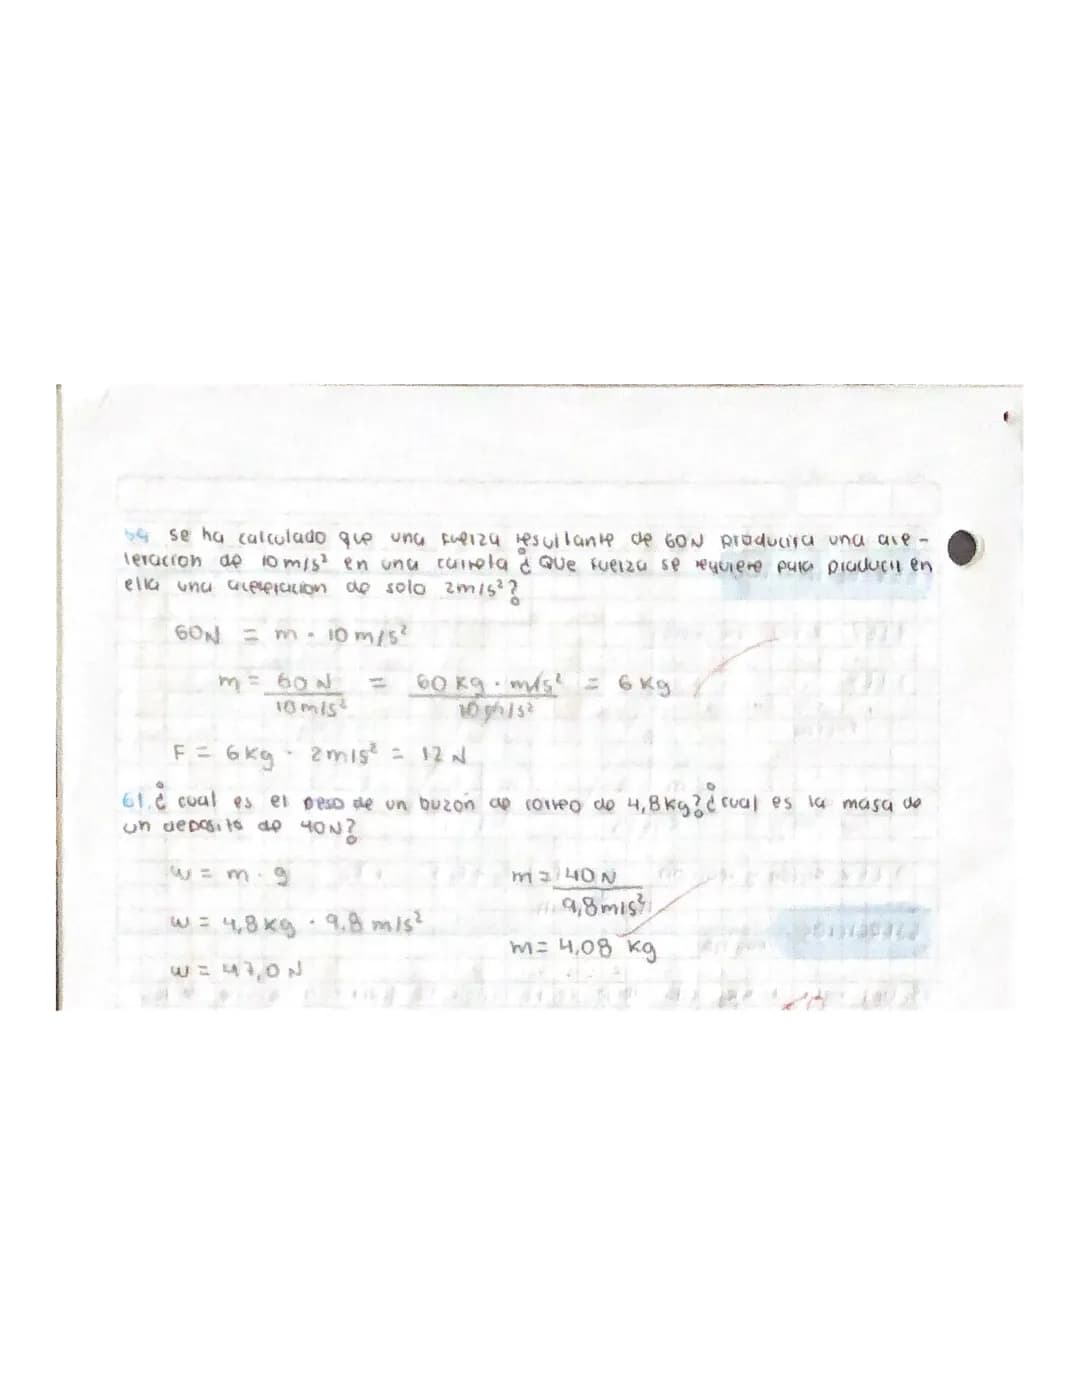 59 se ha calculado que una fuerza resultante de 60N producira una ace-
leracion de 10 m/s² en una carreta ¿ Que fuerza se requiere para producir en
ella una aceleracion de solo 2m/s²?
60N = m · 10 m/s²
m = 60 N / 10 m/s² = 60 kg · m/s² / 10 m/s² = 6 kg
F = 6kg · 2m/s² = 12 N
61. ¿ cual es el peso de un buzón de correo de 4,8kg? ¿ cual es la masa de
un deposito de 40N?
w = m · g
w = 4,8kg · 9.8 m/s²
w = 47,0 N
m = 40 N / 9,8 m/s²
m = 4,08 kg